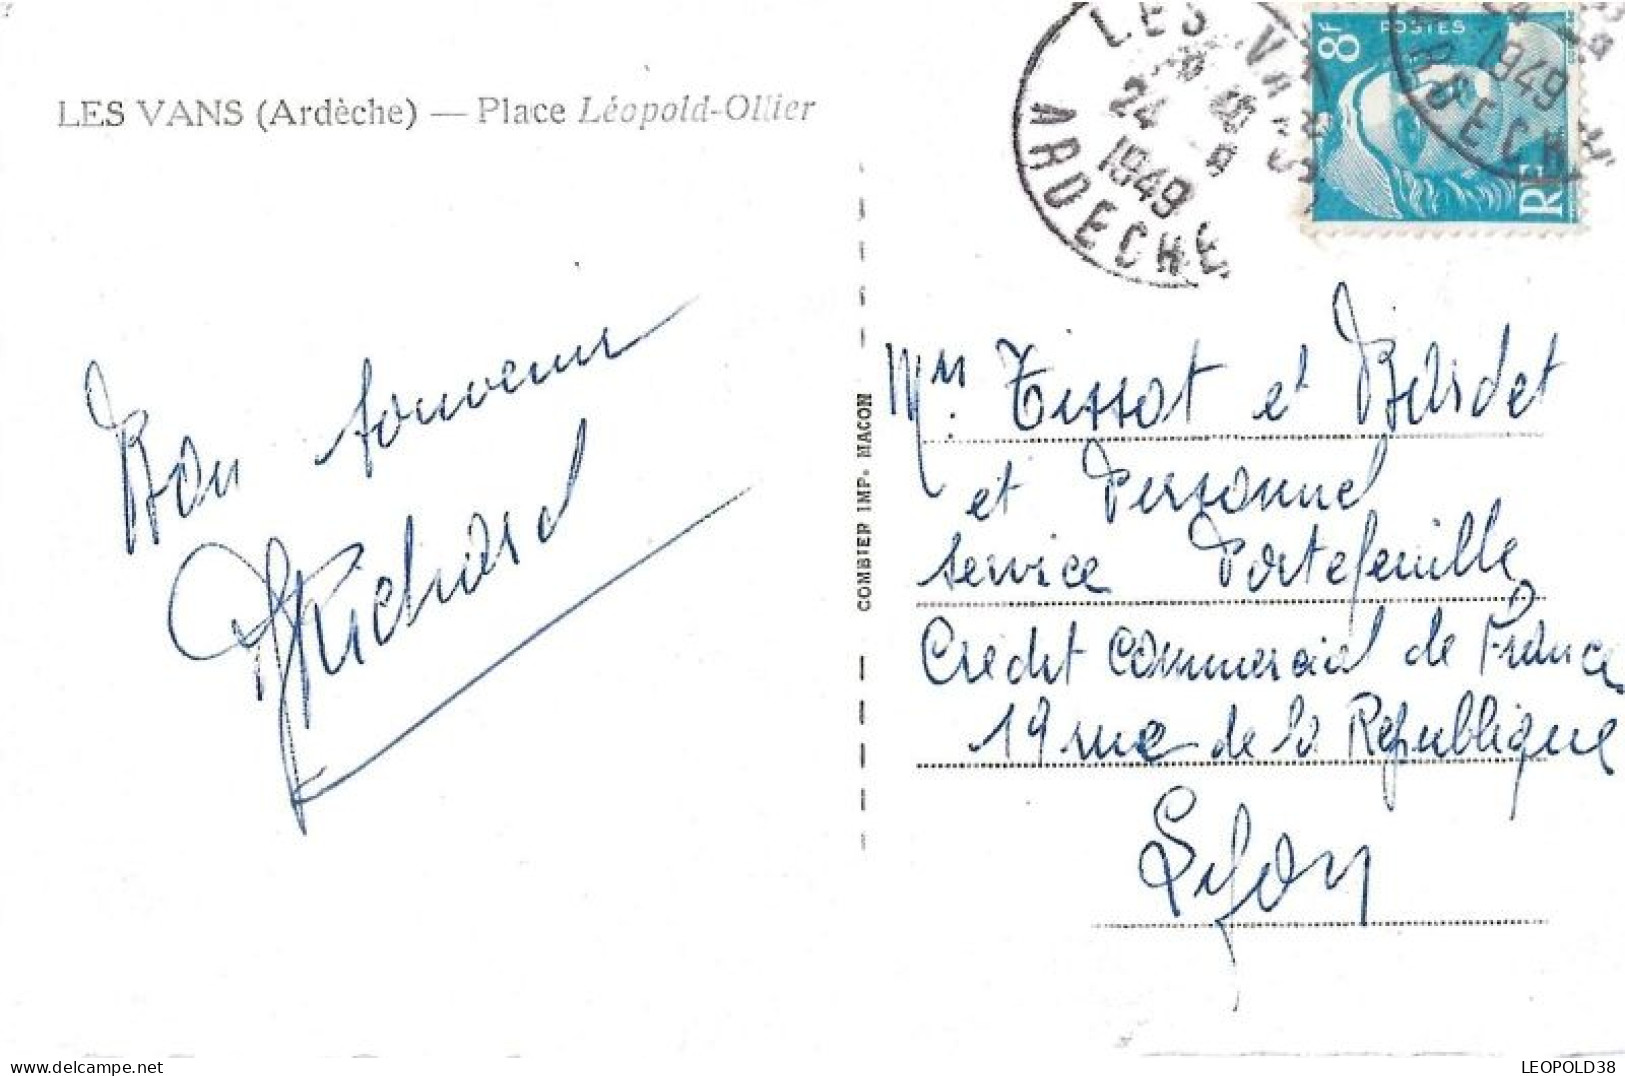 LES VANS (Ardèche) — Place Léopold-Ollier
Bon souvenir
Richard
COMBIER IMP. MACON
LES VANS
24 8
1949
ARDECHE
8F
POSTES
RF
1949
Mrs. Tissot et Bardet
et Personnel
service Portefeuille
Credit Commercial de France
19 rue de la Republique
Lyon
LEOPOLD38